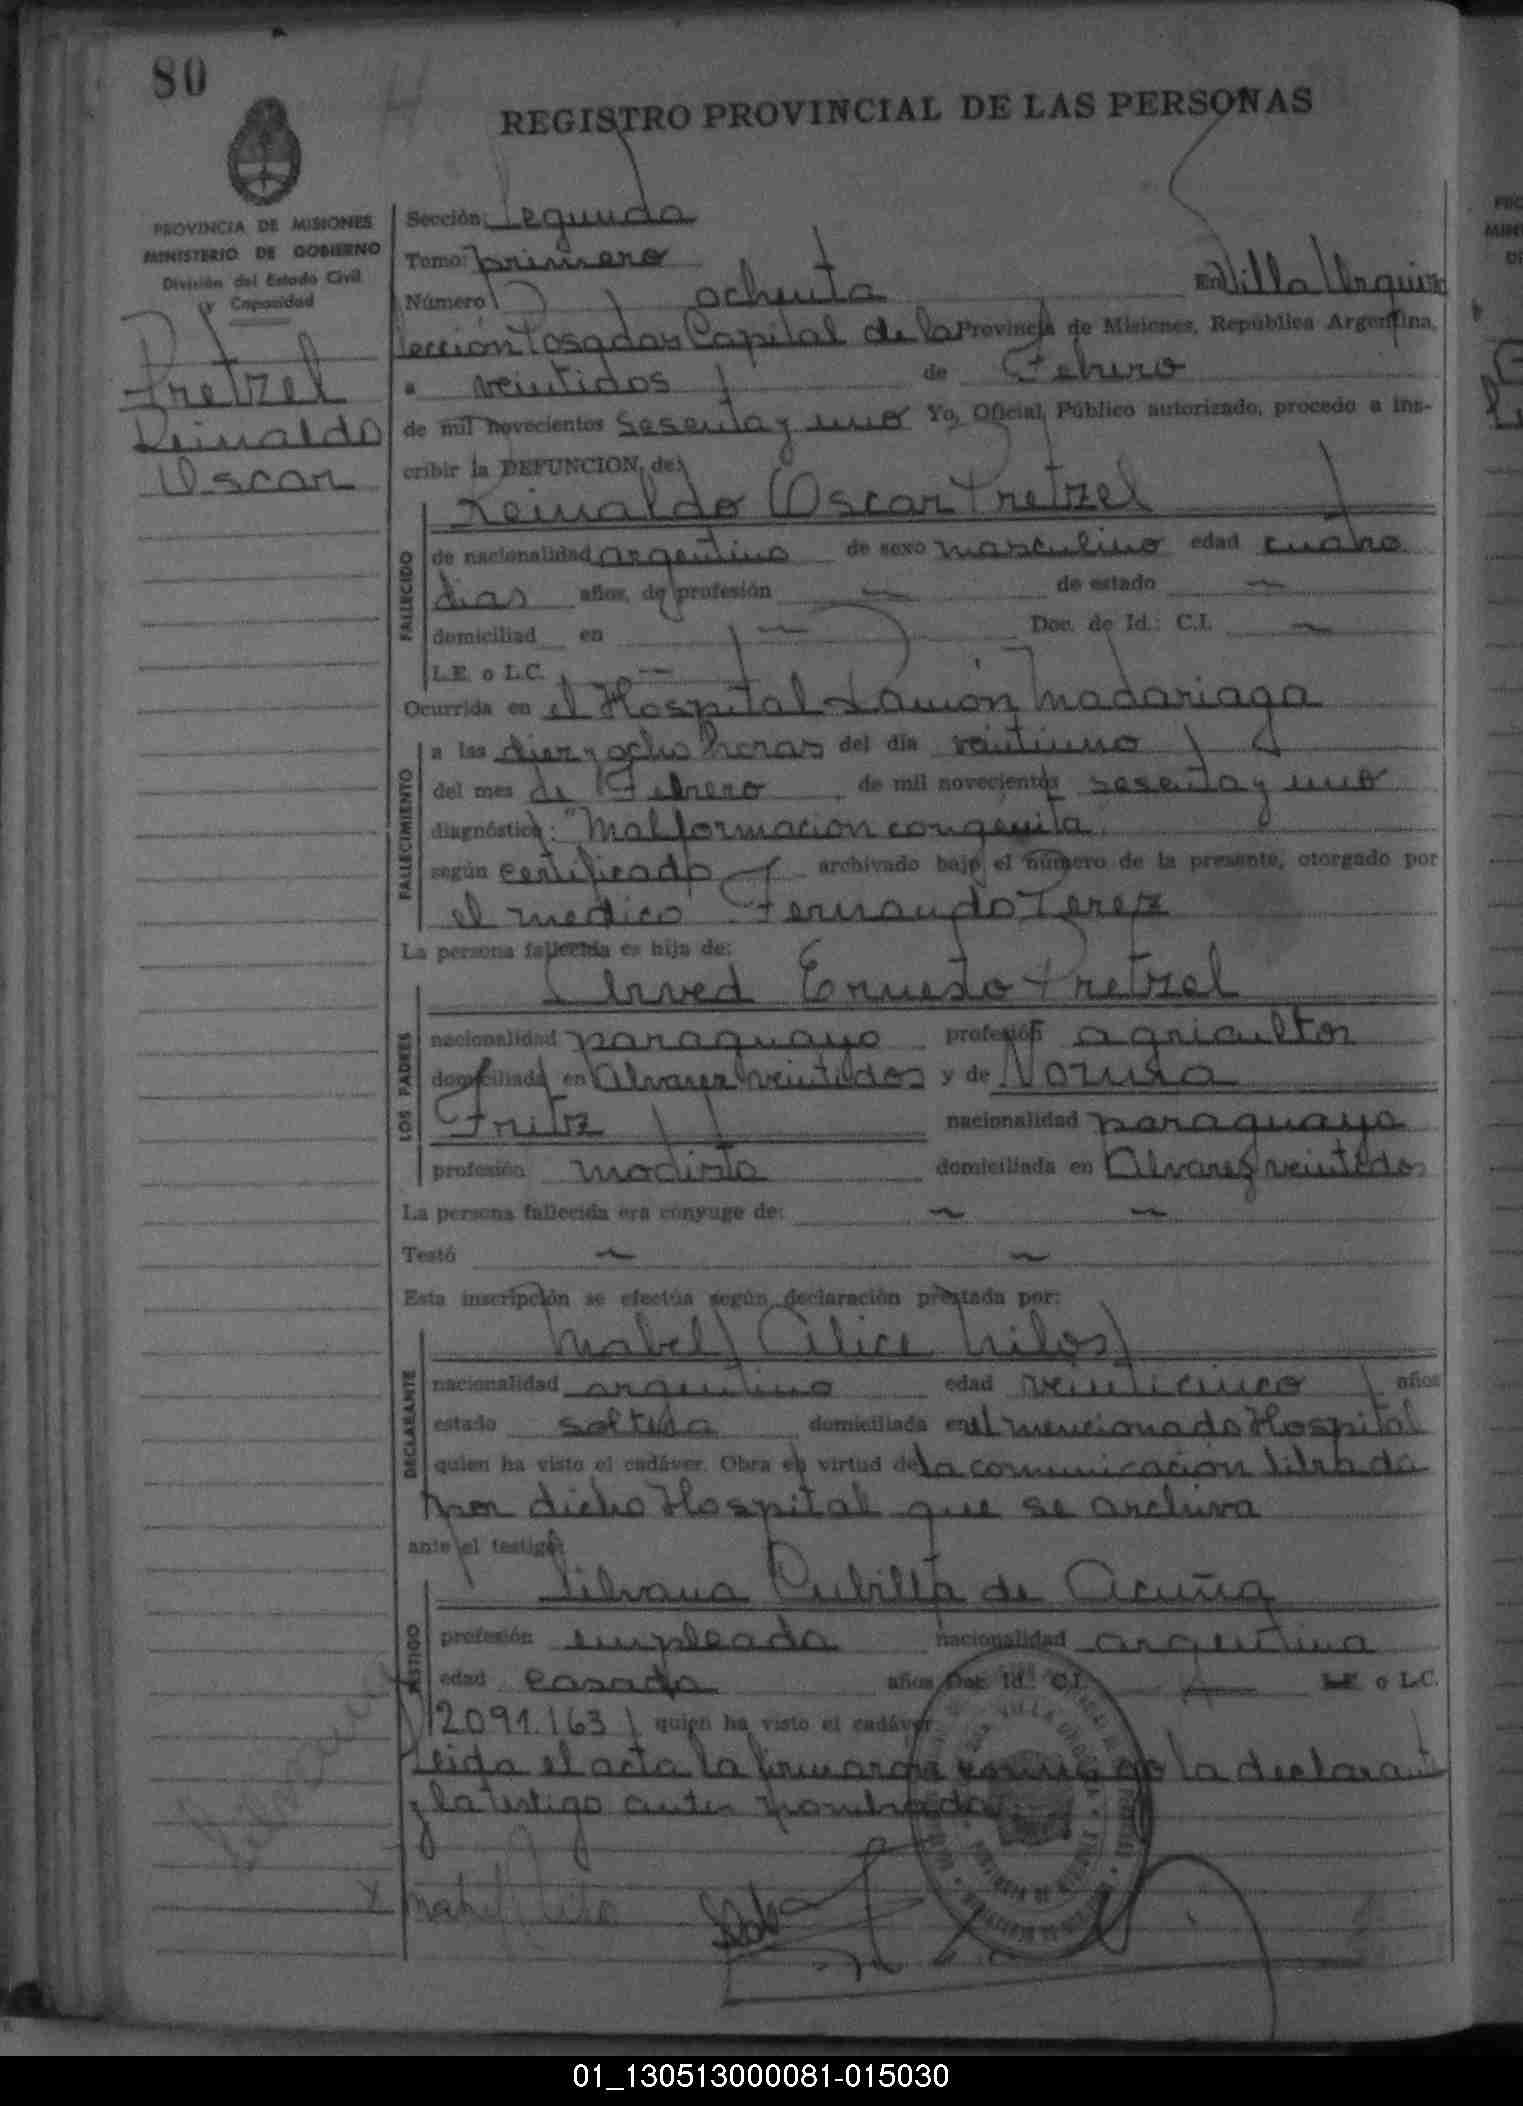 80
REGISTRO PROVINCIAL DE LAS PERSONAS
PROVINCIA DE MISIONES
MINISTERIO DE GOBIERNO
División del Estado Civil
y Capacidad
Pretzel
Reinaldo
Oscar
Sección: Segunda
Tomo: primero
Número ochenta En Villa Urquiza
Sección Posadas Capital de la Provincia de Misiones, República Argentina,
a veintidos de Febrero
de mil novecientos sesenta y uno Yo, Oficial Público autorizado, procedo a ins-
cribir la DEFUNCION de:
Reinaldo Oscar Pretzel
FALLECIDO
de nacionalidad argentino de sexo masculino edad cuatro
dias años, de profesión — de estado —
domiciliad en — Doc. de Id.: C.I. —
L.E. o L.C. —
Ocurrida en el Hospital Ramón Madariaga
FALLECIMIENTO
a las diez y ocho horas del día veintiuno
del mes de Febrero de mil novecientos sesenta y uno
diagnóstico: "Malformacion congenita
según certificado archivado bajo el número de la presente, otorgado por
el medico Fernando Perez
La persona fallecida es hija de:
LOS PADRES
Ernesto Pretzel
nacionalidad paraguayo profesión agricultor
domiciliada en Alvarez veintidos y de Norma
Fritz nacionalidad paraguaya
profesión modista domiciliada en Alvarez veintidos
La persona fallecida era cónyuge de: — —
Testó — —
Esta inscripción se efectúa según declaración prestada por:
DECLARANTE
Mabel Alice
nacionalidad argentina edad veinticinco años
estado soltera domiciliada en el mencionado Hospital
quien ha visto el cadáver. Obra en virtud de la comunicación librada
por dicho Hospital que se archiva
ante el testigo:
TESTIGO
Silvana Cubilla de Acuña
profesión empleada nacionalidad argentina
edad casada años Doc. Id.: C.I. — L.E. o L.C.
2091.163 quien ha visto el cadáver
Leida el acta la firmaron conmigo la declarante
y la testigo antes nombrada
01_130513000081-015030